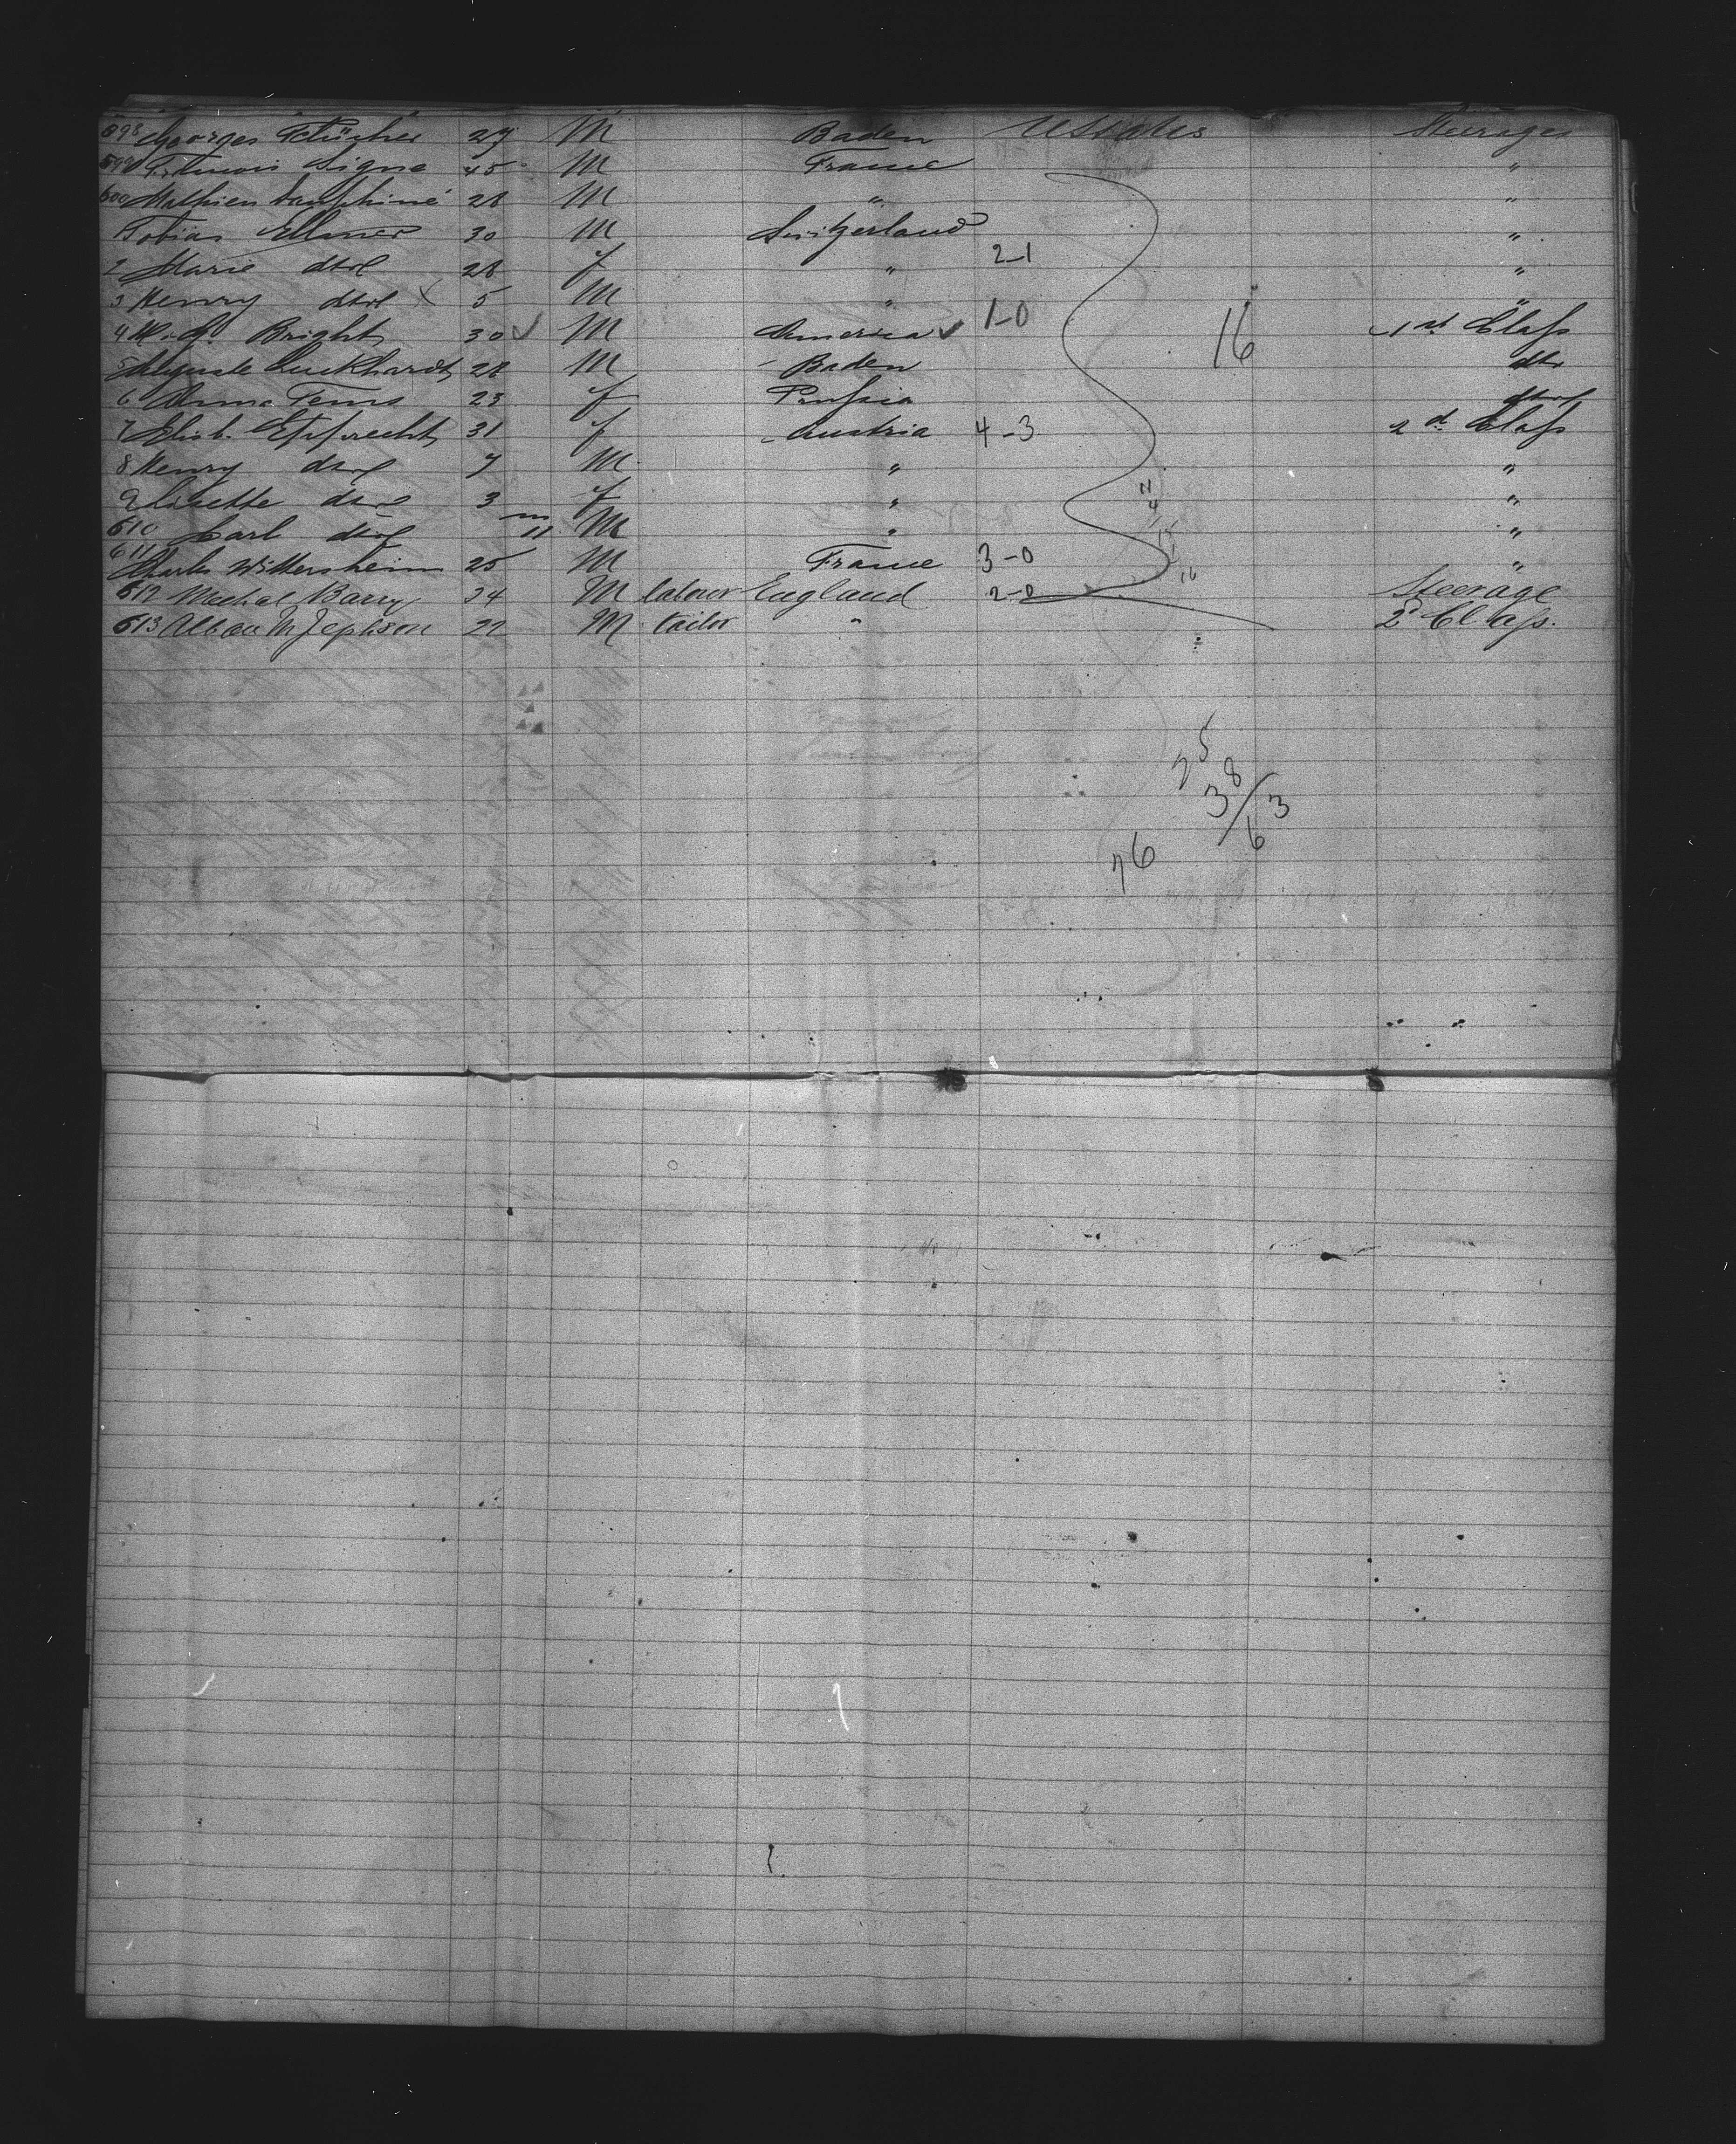 598 Georges 27 M Baden UStates Steerages
599 Signe 45 M France "
600 Mathieu Dauphiné 28 M " "
Tobias Ellmer 30 M Switzerland "
2 Marie dto 28 f " 2-1 "
3 Henry dto X 5 M " "
4 Bright 30 ✓ M America ✓ 1-0 16 1st Class
5 Luckhardt 28 M Baden dto
6 Anna 23 f Prussia dto
7 Elisb. 31 f Austria 4-3 2d Class
8 Henry dto 7 M " "
9 Lisette dto 3 f " 11 "
4
610 Carl dto m 11 M " "
611 Charles Wittersheim 25 M France 3-0 "
612 Micheal Barry 34 M laborer England 2-0 16 Steerage
613 Alban M Jephson 22 M tailor " 2d Class.
25
38/3
6
76